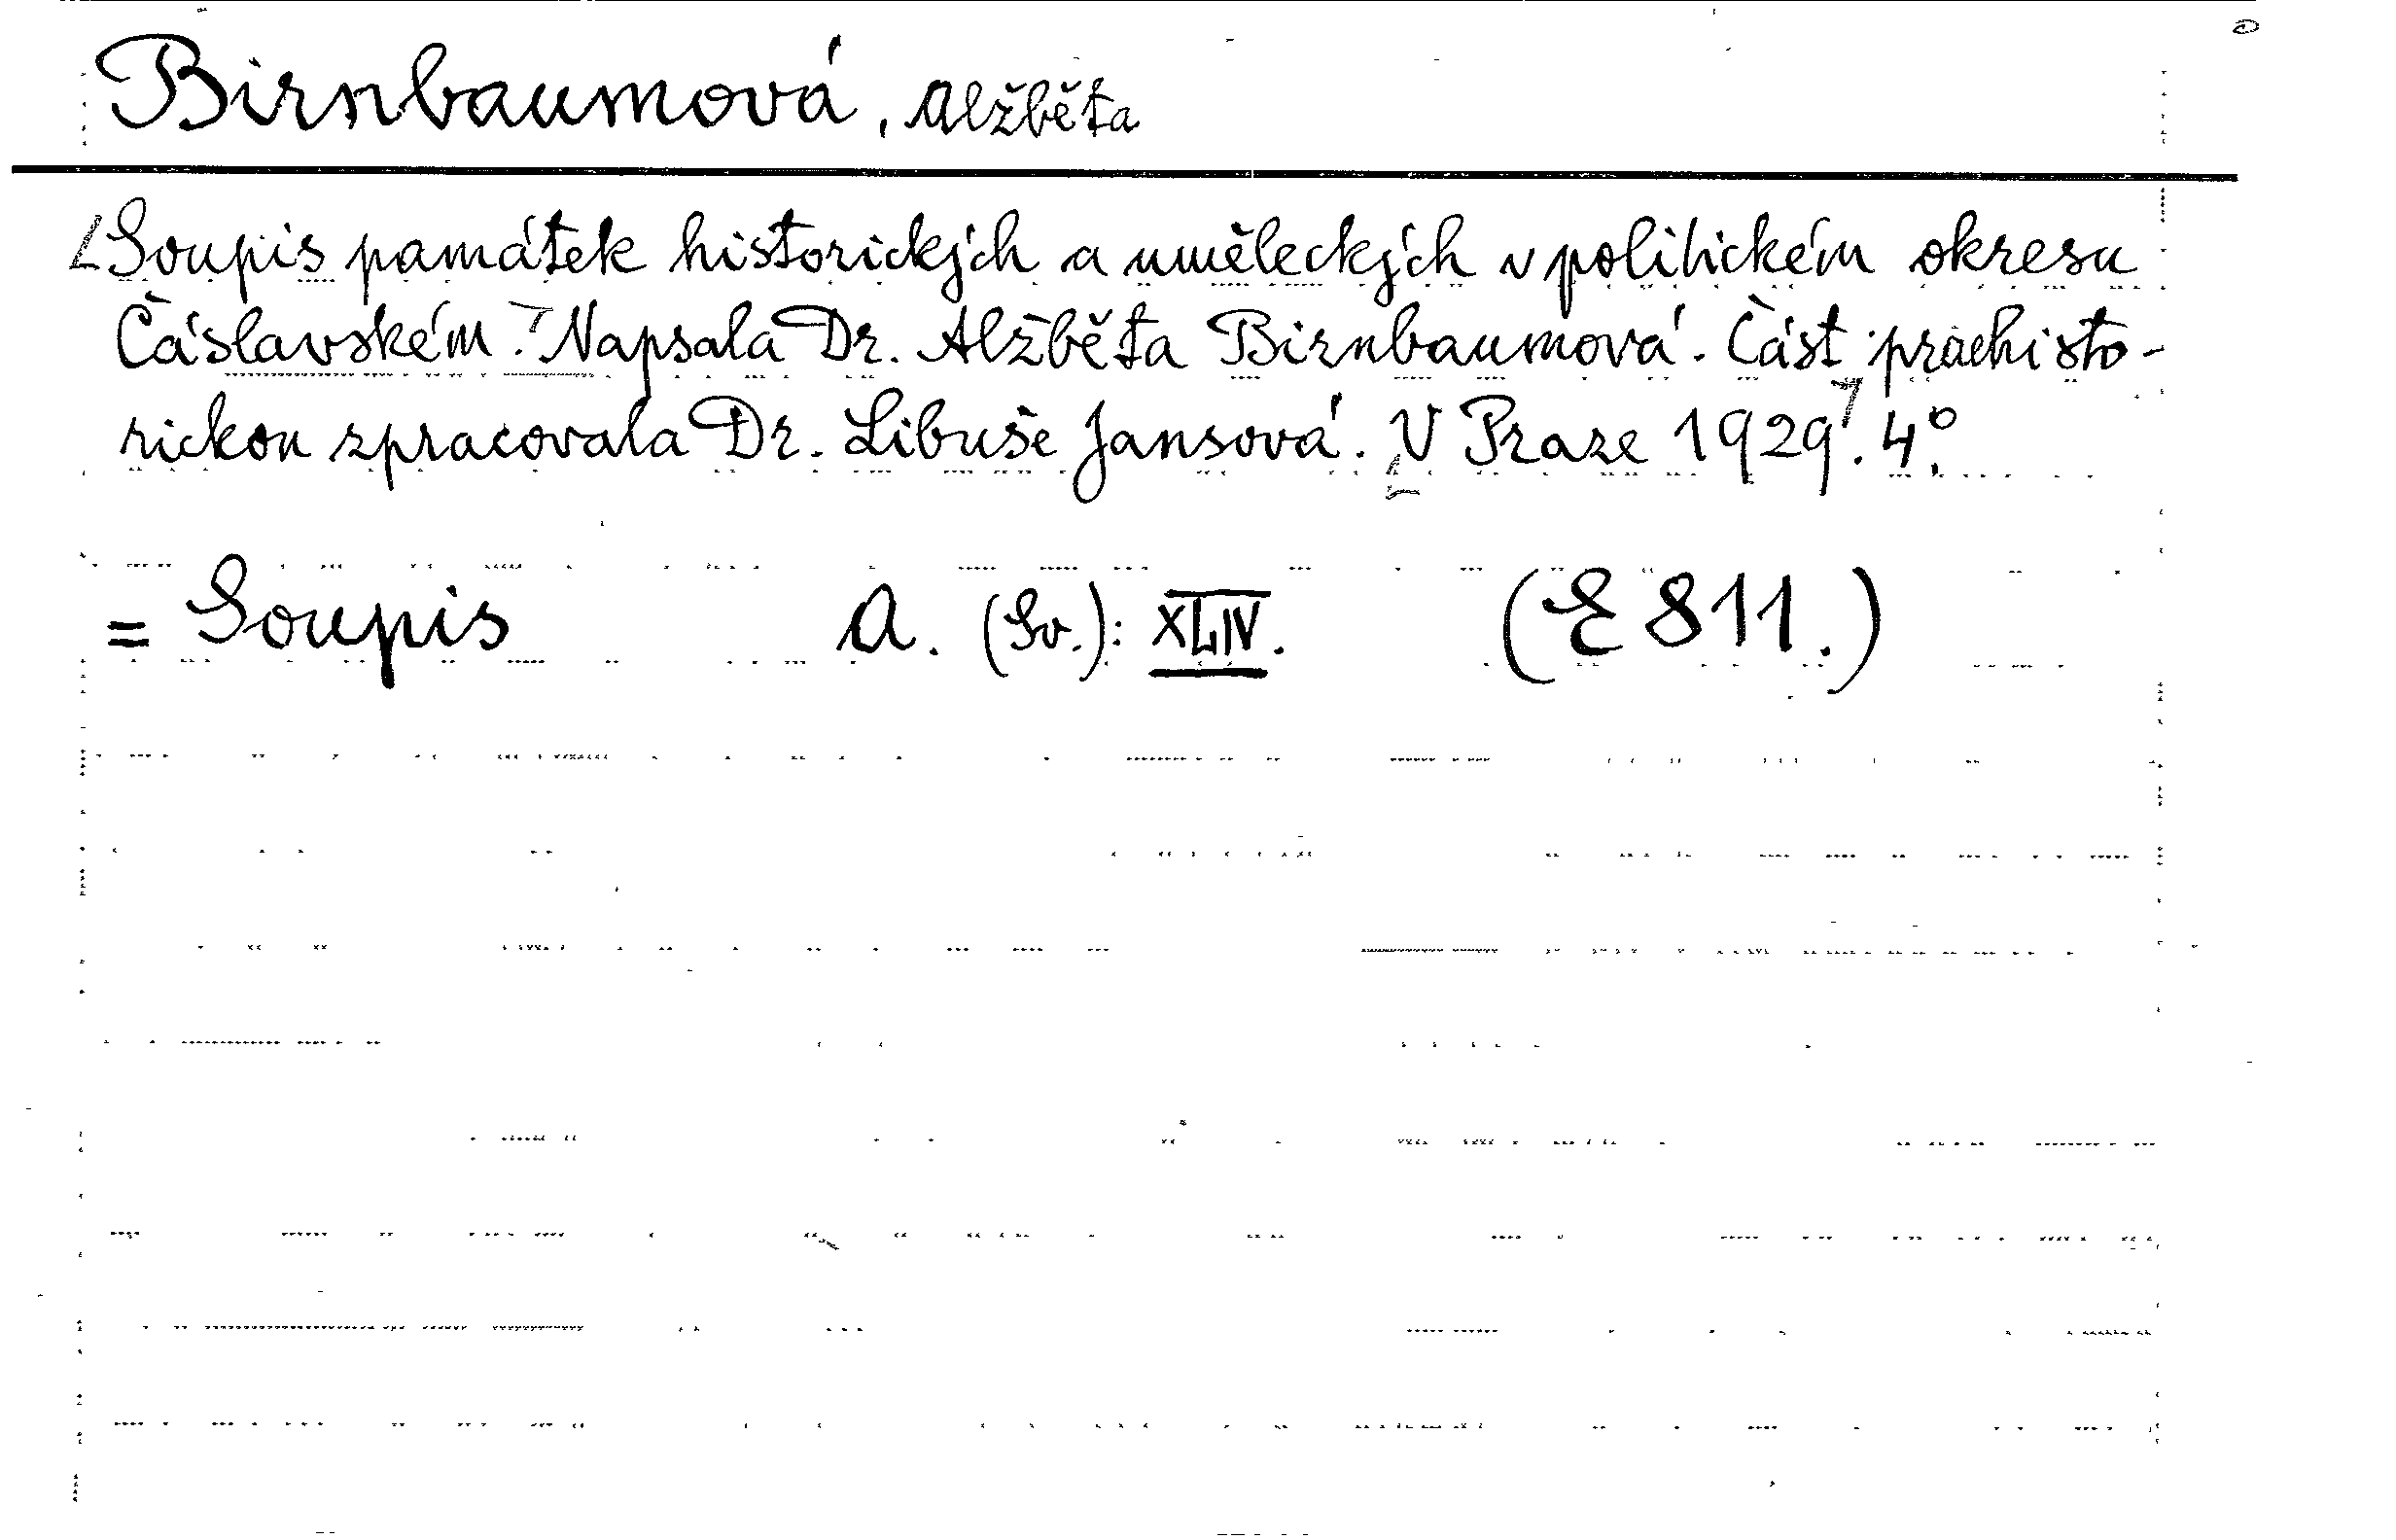 Birnbaumová, Alžběta
Soupis památek historických a uměleckých v politickém okresu
Čáslavském. Napsala Dr. Alžběta Birnbaumová. Část praehisto-
rickou zpracovala Dr. Libuše Jansová. V Praze 1929. 4°.
= Soupis A. (Sv.): XLIV. (E 811.)